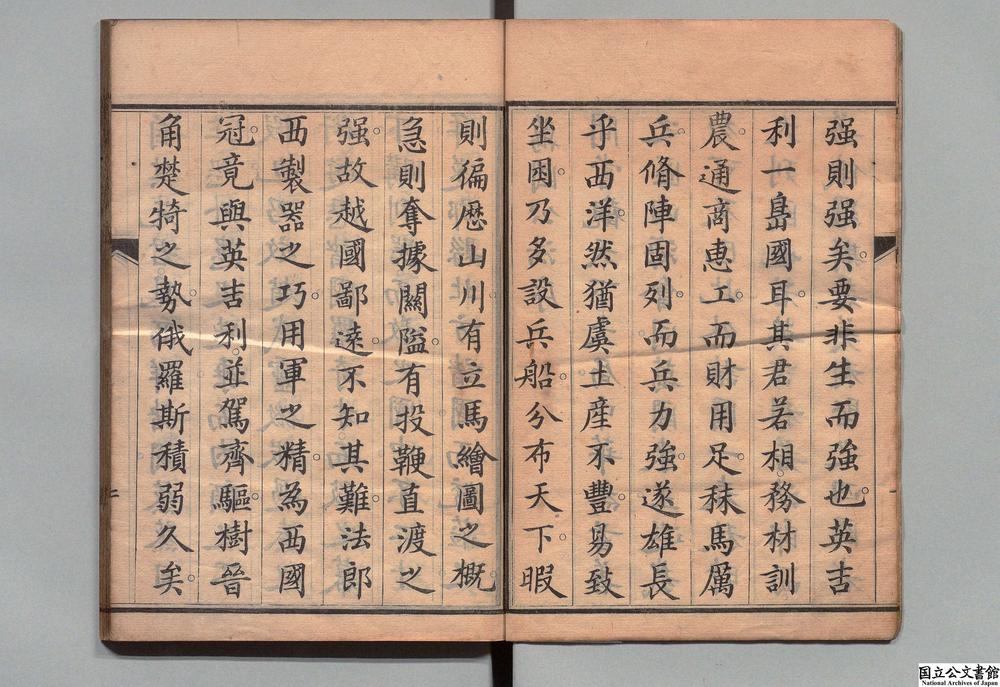 强則强矣。要非生而強也。英吉
利一島國耳。其君若相。務材訓
農。通商惠工。而財用足。秣馬厲
兵。脩陣固列。而兵力強。遂雄長
乎西洋。然猶虞土産不豐。易致
坐困。乃多設兵船。分布天下。暇
則徧歷山川。有立馬繪圖之概。
急則奪據關隘。有投鞭直渡之
强。故越國鄙遠。不知其難。法郎
西製器之巧。用軍之精。為西國
冠。竟與英吉利。並駕齊驅。樹晉
角楚犄之勢。俄羅斯積弱久矣。
二
国立公文書館
National Archives of Japan